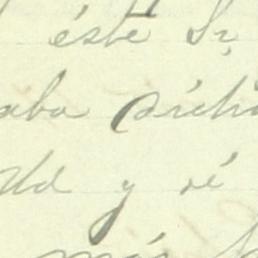 éste Sr
aba dicho
Ud y sé
más